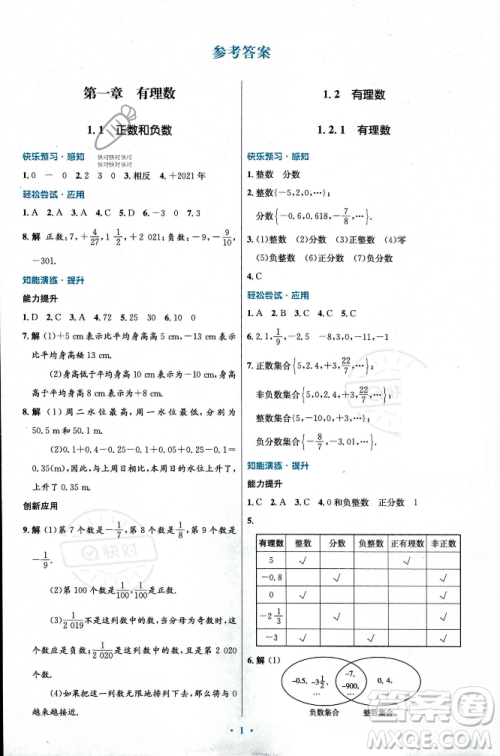 参考答案
第一章　有理数
1.1　正数和负数
快乐预习·感知
1.0　-0　2.2　3　0　3.相反　4.+2021年
轻松尝试·应用
1.A　2.A　3.C　4.A　5.D　6.A　7.A
8.解 正数:7,+4/27,+1/3,+2 021;负数:-9,-9/10,
-301.
知能演练·提升
能力提升
1.D　2.C　3.A　4.2　5.24　6.10:00
7.解 (1)+5 cm表示比平均身高高5 cm;-9 cm表示比平均身高矮13 cm.
(2)身高低于平均身高5 cm表示为-5 cm;身高高于平均身高8 cm表示为+8 cm.
8.解 (1)周二水位最高,周一水位最低,分别为
50.5 m和50.1 m.
(2)0.1+0.4-0.25-0.03+0.28-0.25+0.1=
0.35(m),所以,与上周日相比,本周日的水位上升了,上升了0.35 m.
创新应用
9.解 (1)第7个数是-1/7,第8个数是1/8,第9个数是
-1/9.
(2)第100个数是1/100,1/100是正数.
(3)1/2 019不是这列数中的数,当分母为奇数时,这
个数应是负数;1/2 020是这列数中的数,是第2 020
个数.
(4)如果这列数无限地排列下去,那么将与0
越来越接近.
1.2　有理数
1.2.1　有理数
快乐预习·感知
1.整数　分数
2.整数{-5,2,0,…};
分数{-0.6,0.618,-7/8,…}
3.(1)整数　(2)分数　(3)正分数　(4)零
(5)负整数　(6)负分数
4.C
轻松尝试·应用
1.A　2.B　3.C　4.C　5.C
6.2,1　-1/9,-0.2　-8,0,-11,-1
7.正数集合{5,2.4,+3,22/7,…};
非负数集合{5,2.4,+3,22/7,0,…};
整数集合{5,-10,+3,0,…};
负分数集合{-8/7,-3.01,…}.
知能演练·提升
能力提升
1.C　2.A　3.A　4.0和负整数　正分数　1
5.
有理数　整数　分数　负整数　正有理数　非正数
5　√　√
-0.8　√　√
0　√　√
-2 1/3　√　√
-3　√　√　√
6.解 (1)
-0.5,　-3½　-7,　0,
-900　1,3
负数集合　整数集合
1